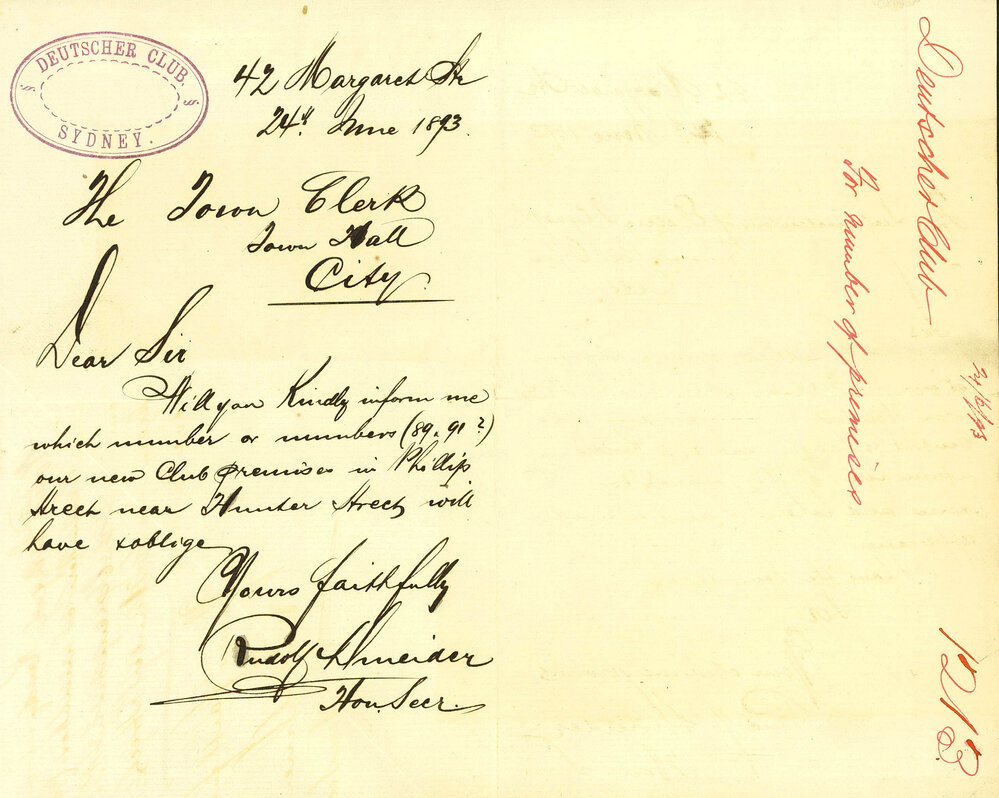 DEUTSCHER CLUB.
§ §
SYDNEY.
42 Margaret Str
24th June 1893.
The Town Clerk
Town Hall
City
Dear Sir
Will you Kindly inform me
which number or numbers (89 & 91?)
our new Club premises in Phillip
Street near Hunter Street will
have & oblige
Yours faithfully
Rudolf Schneider
Hon. Secr.
Deutscher Club
For number of premises
24/6/93